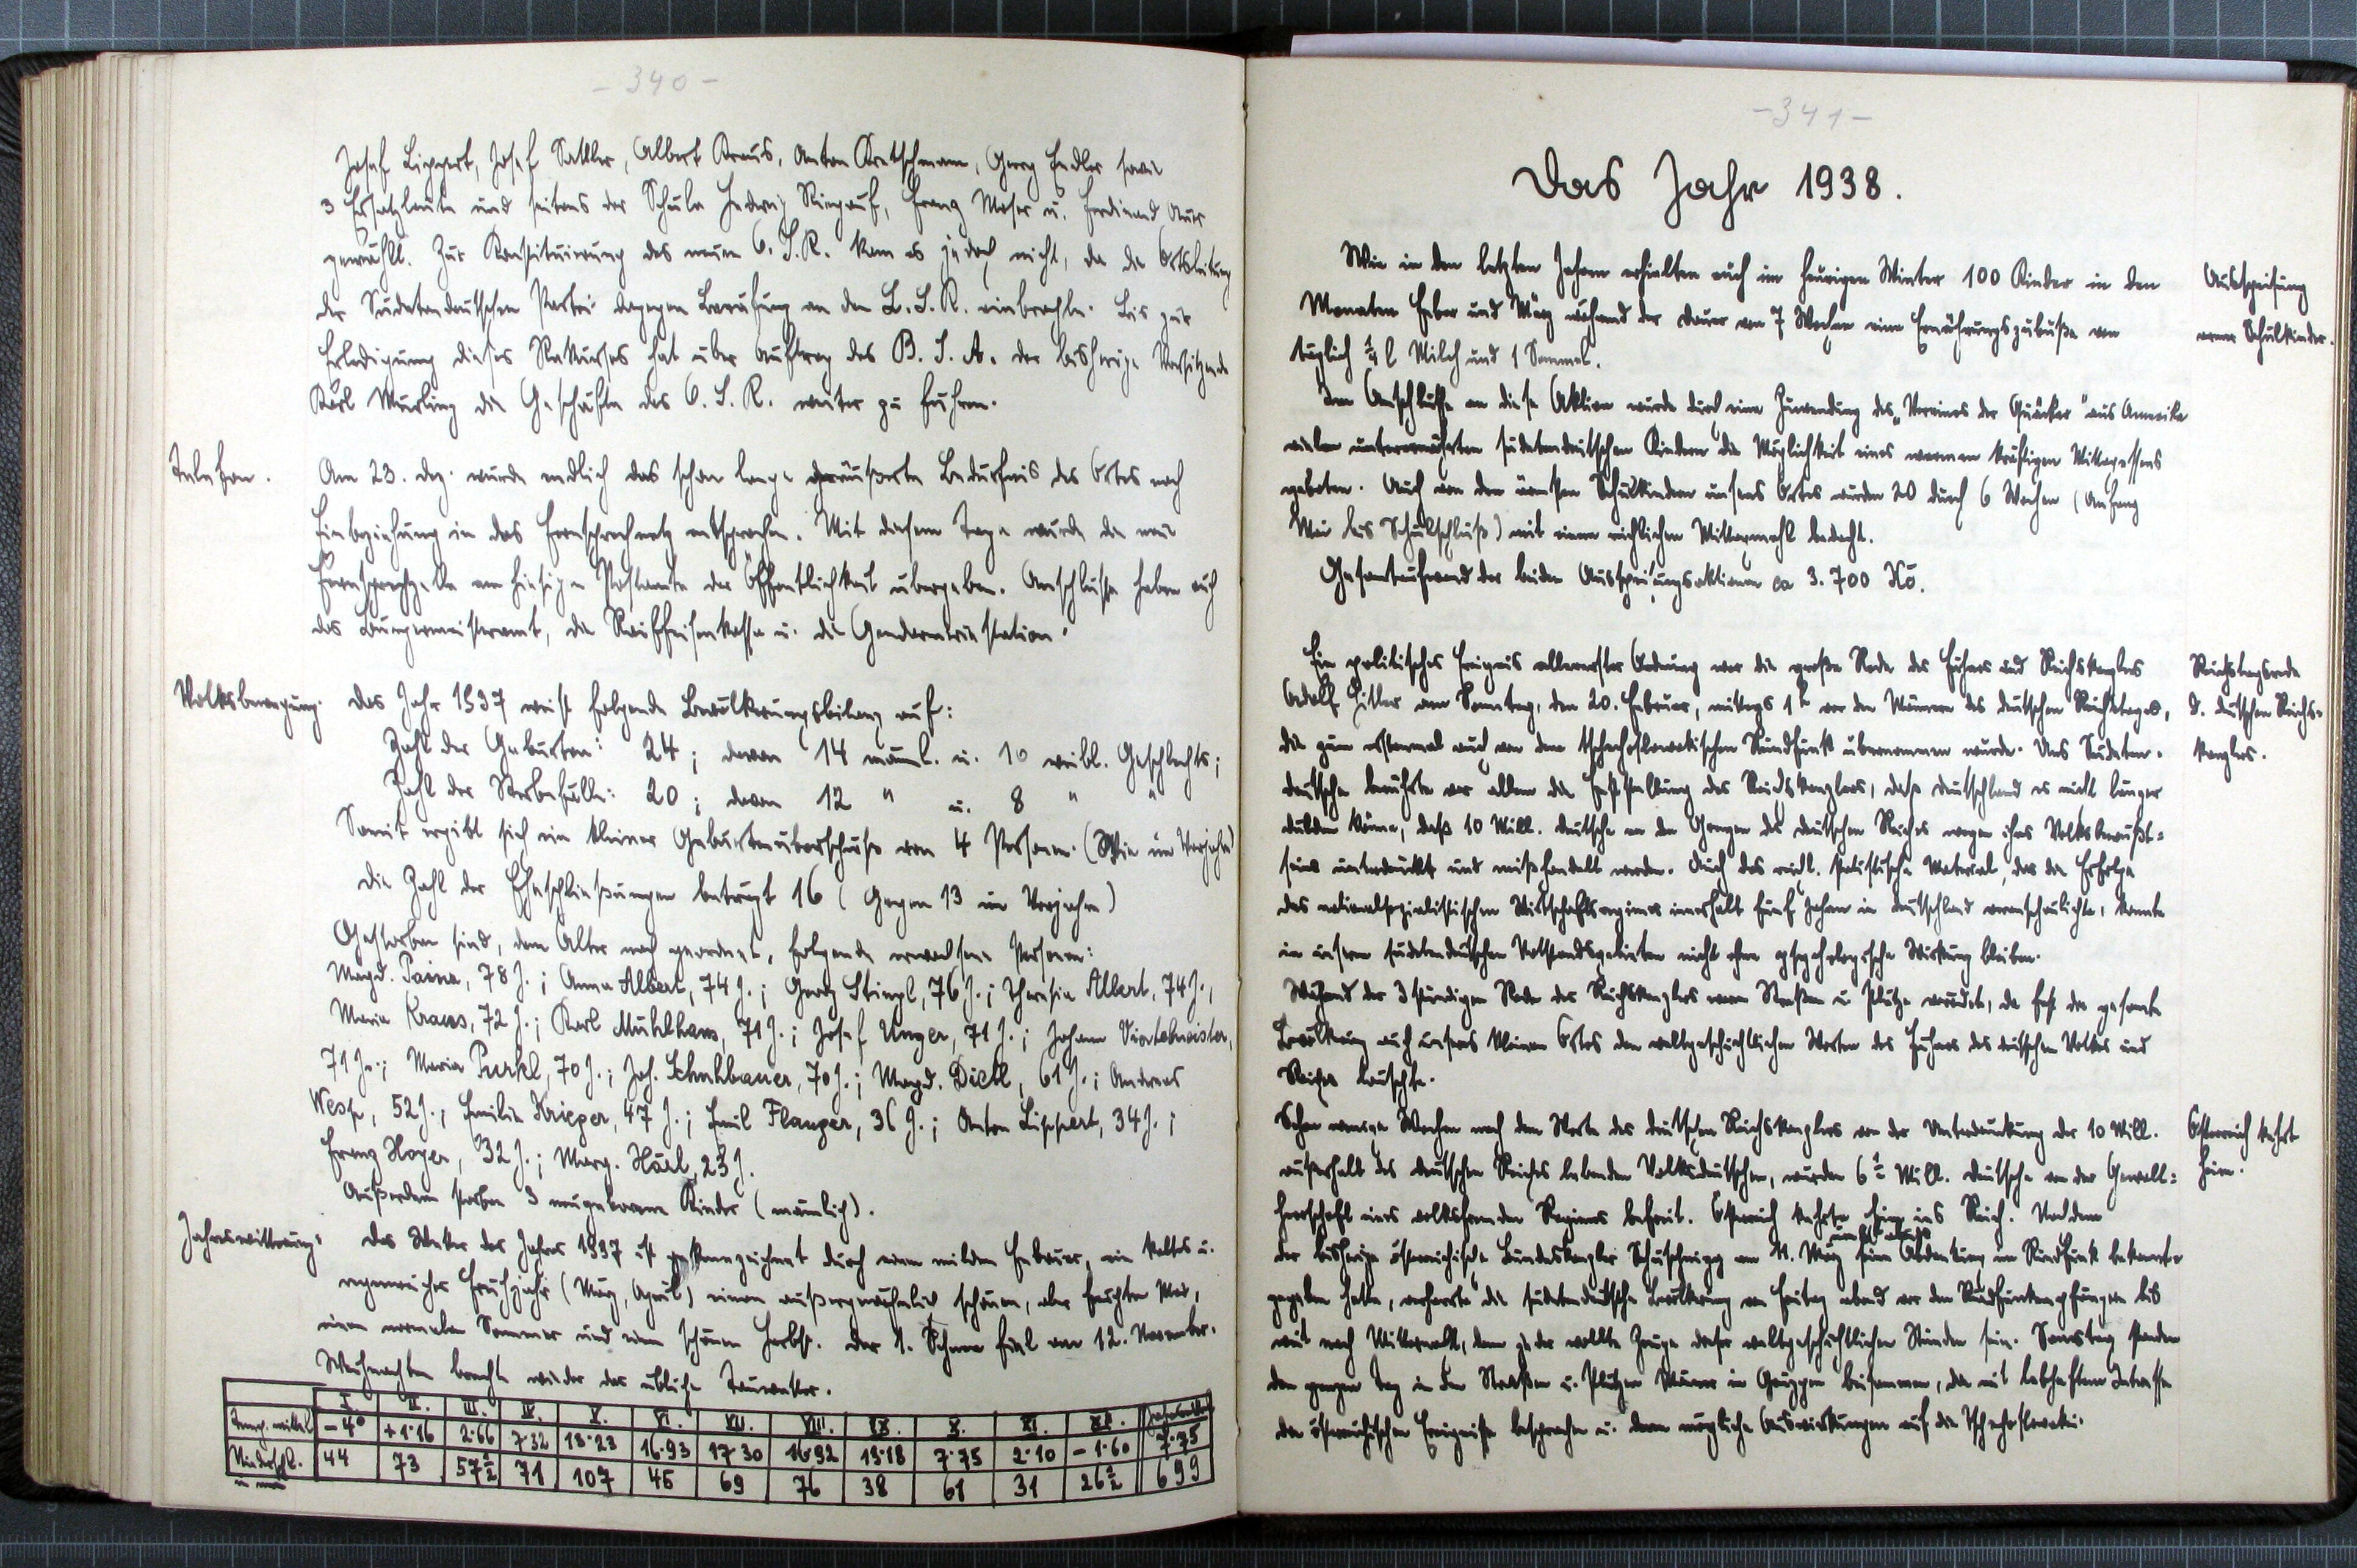 - 340 -
Josef Lippert, Josef Sattler, Albert Kraus, Anton Kretschmann, Georg Endler sowie
3 Ersatzleute und seitens der Schule Hedwig Ringauf, Franz Moser u. Ferdinand
gewählt. Zur Konstituierung des neuen O. S. R. kam es jedoch nicht, da die Ortsleitung
der Sudetendeutschen Partei dagegen Berufung an den L. S. R. einbrachte. Bis zur
Erledigung dieses Rekurses hat über Auftrag des B. S. A. der bisherige Vorsitzende
Karl Wurling die Geschäfte des O. S. R. weiter zu führen.
Telefon.
Am 23. Dez. wurde endlich das schon lange geäußerte Bedürfnis des Ortes nach
Einbeziehung in das Fernsprechnetz entsprochen. Mit diesem Tage wurde die neue
Fernsprechzelle am hiesigen Postamte der Öffentlichkeit übergeben. Anschlüsse haben auch
das Bürgermeisteramt, die Raiffeisenkasse u. die Gendarmeriestation.
Volksbewegung.
Das Jahr 1937 weist folgende Bevölkerungsbilanz auf:
Zahl der Geburten: 24; davon 14 männl. u. 10 weibl. Geschlechts;
Zahl der Sterbefälle: 20; davon 12 " u. 8 " "
Somit ergibt sich ein kleiner Geburtenüberschuß von 4 Personen. (Wie im Vorjahre)
Die Zahl der Eheschließungen beträgt 16 (Gegen 13 im Vorjahre)
Gestorben sind, dem Alter nach geordnet, folgende erwachsene Personen:
Magd. Paina, 78 J.; Anna Albert, 74 J.; Georg Stingl, 76 J.; Theresia Albert, 74 J.,
Maria Kraus, 72 J.; Karl Mühlhans, 71 J.; Josef Unger, 71 J.; Johann Viertelmeister,
71 J.; Maria Purkl, 70 J.; Joh. Schuhbauer, 70 J.; Magd. Dietl, 61 J.; Andreas
Wesp, 52 J.; Emilie Krieger, 47 J.; Emil Flauger, 36 J.; Anton Lippert, 34 J.;
Franz Hoyer, 32 J.; Marg. Härl, 23 J.
Außerdem starben 3 neugeborene Kinder (männlich).
Jahreswitterung:
Das Wetter des Jahres 1937 ist gekennzeichnet durch einen milden Februar, ein kaltes u.
regenreiches Frühjahr (März, April) einen außergewöhnlich schönen, aber feuchten Mai,
einen normalen Sommer und einen schönen Herbst. Der 1. Schnee fiel am 12. November.
Weihnachten brachte wieder das übliche Tauwetter.
I. II. III. IV. V. VI. VII. VIII. IX. X. XI. XII. Jahresmittel
Temp. mittel -4° +1·16 2·66 7·32 13·23 16·93 17·30 16·92 13·18 7·75 2·10 -1·60 7·75
Niederschl. in mm 44 73 57½ 71 107 45 69 76 38 61 31 26½ 699
- 341 -
Das Jahr 1938.
Wie in den letzten Jahren erhielten auch im heurigen Winter 100 Kinder in den
Monaten Feber und März während der Dauer von 7 Wochen eine Ernährungszubuße von
täglich ¼ l Milch und 1 Semmel.
Ausspeisung
armer Schulkinder.
Im Anschlusse an diese Aktion wurde durch eine Zuwendung des „Vereines der Quäcker" aus Amerika
vielen unterernährten sudetendeutschen Kindern die Möglichkeit eines warmen kräftigen Mittagessens
geboten. Auch von den ärmsten Schulkindern unseres Ortes wurden 20 durch 6 Wochen (Anfang
Mai bis Schulschluß) mit einem reichlichen Mittagmahl bedacht.
Gesamtaufwand der beiden Ausspeisungsaktionen ca 3.700 Kč.
Ein politisches Ereignis allererster Ordnung war die große Rede des Führers und Reichskanzlers
Adolf Hitler am Sonntag, den 20. Februar, mittags 1h vor den Männern des deutschen Reichstages,
die zum erstenmal auch von dem tschechoslowakischen Rundfunk übernommen wurde. Uns Sudeten-
deutsche berührte vor allem die Feststellung des Reichskanzlers, daß Deutschland es nicht länger
dulden könne, daß 10 Mill. Deutsche an den Grenzen des deutschen Reiches wegen ihres Volksbewußt=
seins unterdrückt und mißhandelt werden. Auch das reichl. statistische Material, das die Erfolge
des nationalsozialistischen Wirtschaftsregimes innerhalb fünf Jahren in Deutschland veranschaulichte, konnte
in unseren sudetendeutschen Notstandsgebieten nicht ohne psychologische Wirkung bleiben.
Reichstagsrede
d. deutschen Reichs-
kanzlers.
Während der 3 stündigen Rede des Reichskanzlers waren Straßen u. Plätze verödet, da fast die gesamte
Bevölkerung auch unseres kleinen Ortes den weltgeschichtlichen Worten des Führers des deutschen Volkes und
Reiches lauschte.
Schon wenige Wochen nach dem Worte des deutschen Reichskanzlers von der Unterdrückung der 10 Mill.
außerhalb des deutschen Reiches lebenden Volksdeutschen, wurden 6½ Mill. Deutsche von der Gewalt=
herrschaft eines volksfremden Regimes befreit. Österreich kehrte heim ins Reich. Nachdem
der bisherige österreichische Bundeskanzler Schuschnigg am 11. März seine Abdankung im Rundfunk bekannt
gegeben hatte, verharrte die sudetendeutsche Bevölkerung am Freitag abend vor den Rundfunkempfängern bis
weit nach Mitternacht, denn jeder wollte Zeuge dieser weltgeschichtlichen Stunden sein. Samstag standen
den ganzen Tag in den Straßen u. Plätzen Männer in Gruppen beisammen, die mit lebhaftem Interesse
die österreichischen Ereignisse besprachen u. deren mögliche Auswirkungen auf die Tschechoslowakei.
Österreich kehrt
heim.